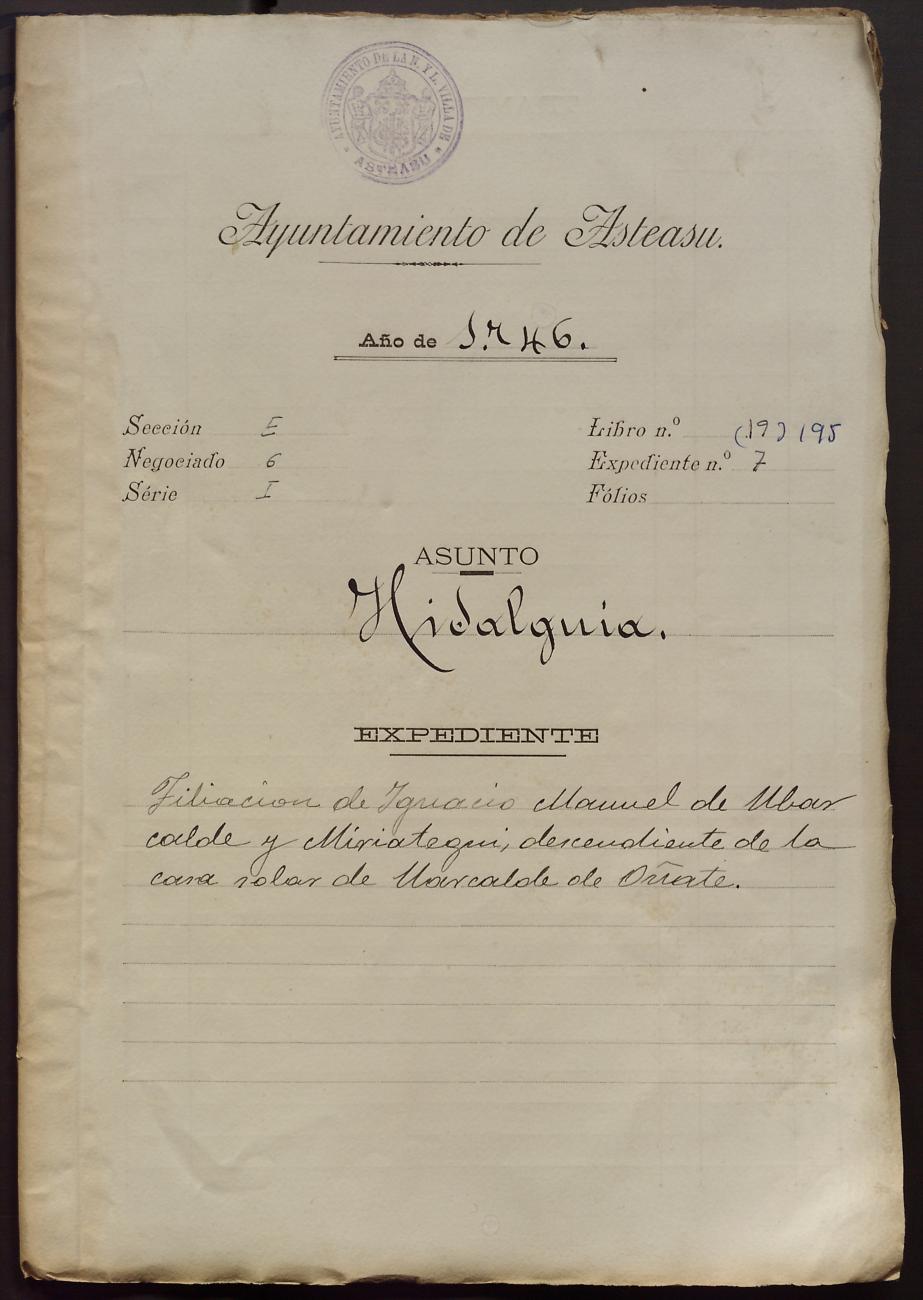 AYUNTAMIENTO DE LA N. Y L. VILLA DE
* ASTEASU *
Ayuntamiento de Asteasu.
Año de 1.746.
Sección E
Negociado 6
Série I
Libro n.º (19) 195
Expediente n.º 7
Fólios
ASUNTO
Hidalguia.
EXPEDIENTE
Filiacion de Ignacio Manuel de Ubar
calde y Miriategui, descendiente de la
casa solar de Uarcalde de Oñate.